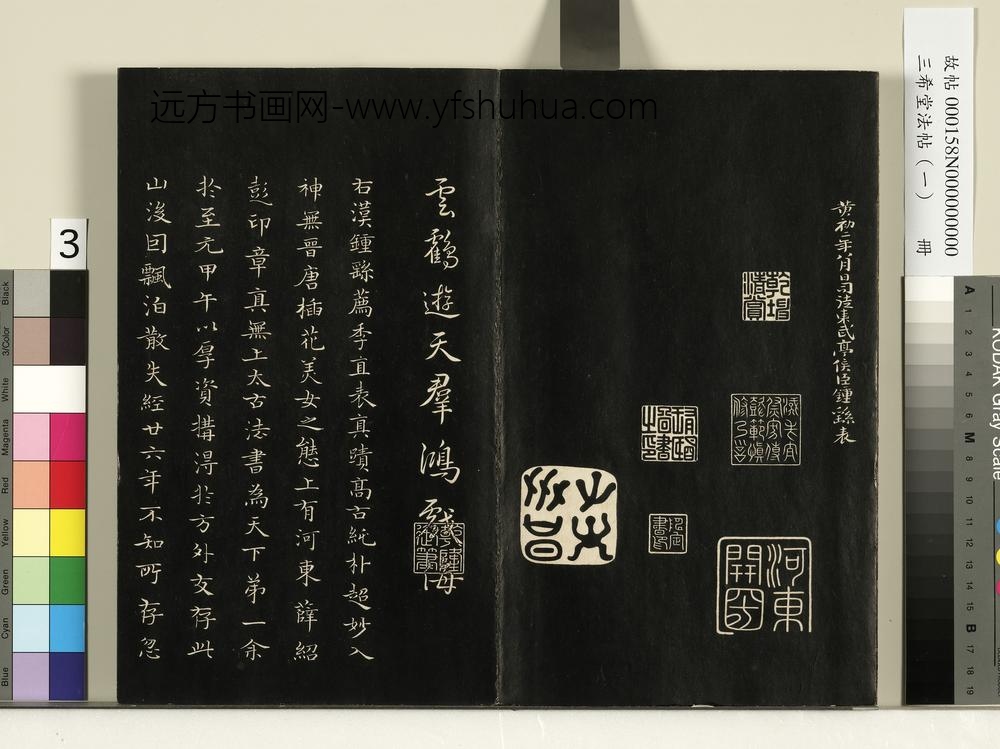 故帖 000158N000000000
三希堂法帖（一） 冊
远方书画网-www.yfshuhua.com
黃初二年八月日司徒東武亭侯臣鍾繇表
乾隆
清賞
河東
開國
雲鶴遊天羣鴻戲海
右漢鍾繇薦季直表真蹟高古純朴超妙入
神無晉唐插花美女之態上有河東薛紹
彭印章真無上太古法書為天下第一余
於至元甲午以厚資購得於方外友存此
山後囙飄泊散失經廿六年不知所存忽
3
Black
3/Color
White
Magenta
Red
Yellow
Green
Cyan
Blue
KODAK Gray Scale
A 1 2 3 4 5 6 M 8 9 10 11 12 13 14 15 B 17 18 19